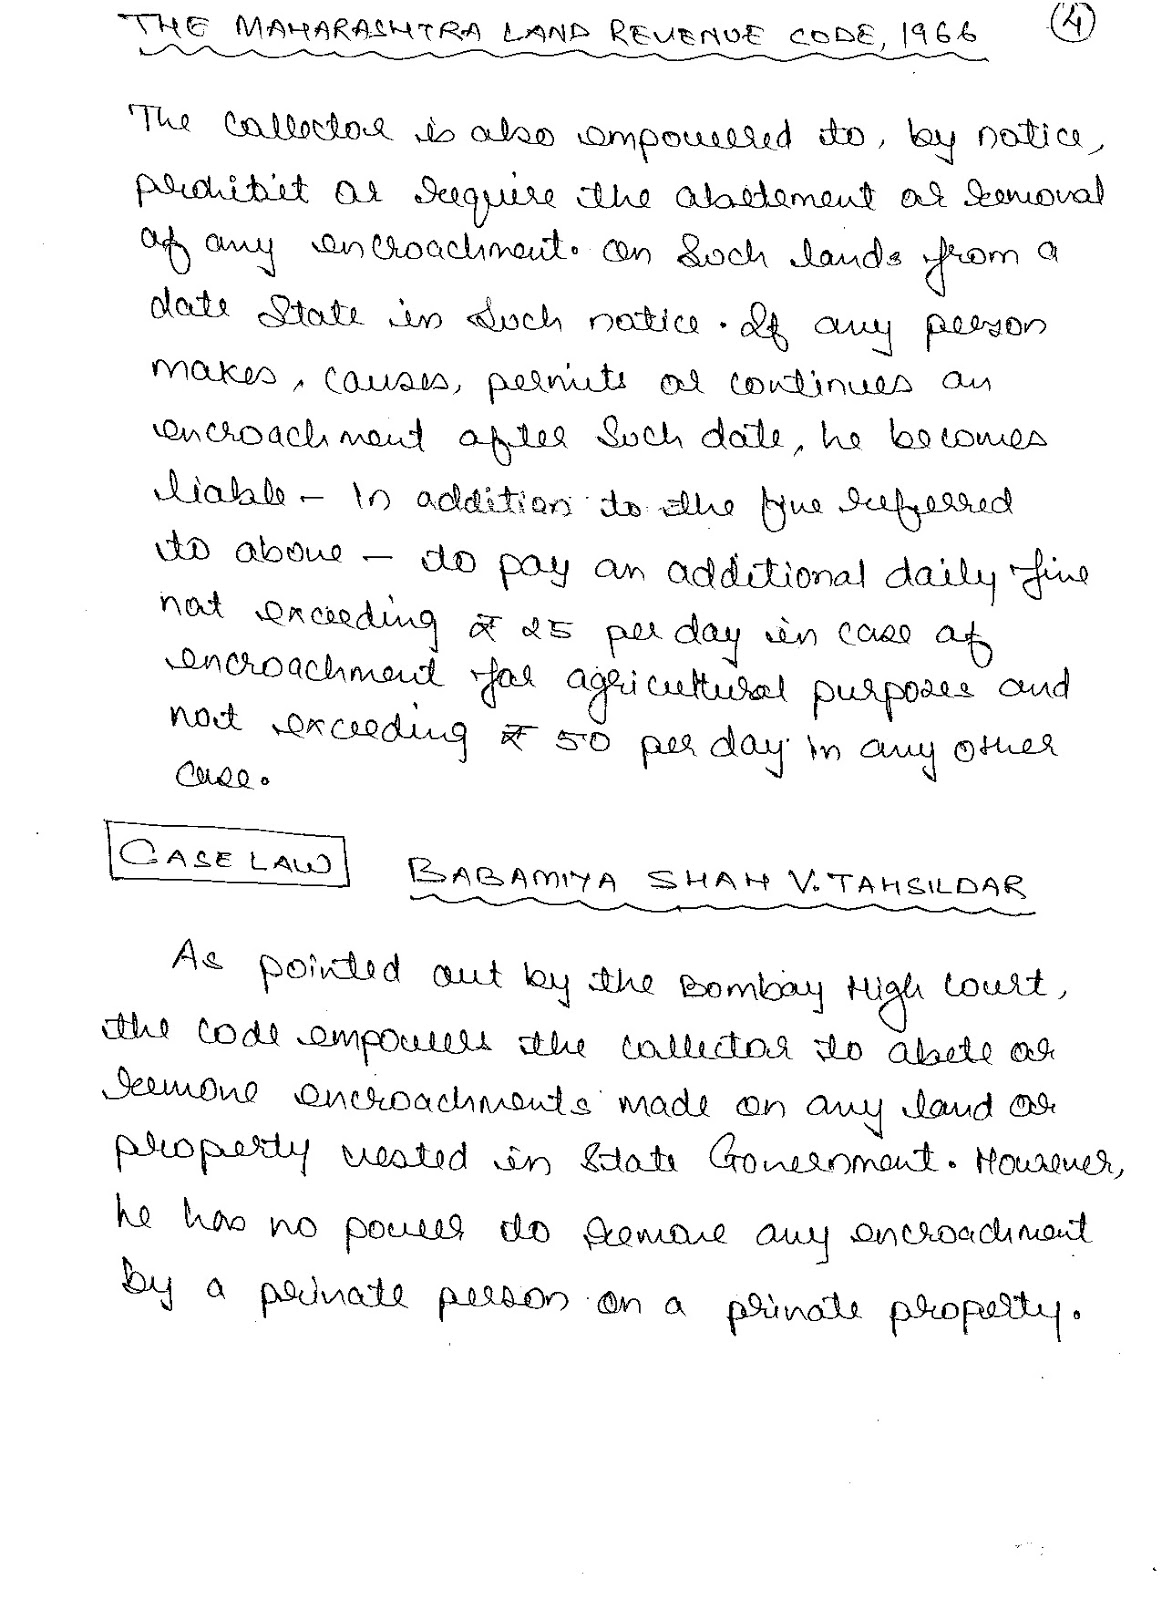 THE MAHARASHTRA LAND REVENUE CODE, 1966 (4)
The Collector is also empowered to, by notice,
prohibit or require the abatement or removal
of any encroachment. on such lands from a
date State in such notice. If any person
makes, causes, permits or continues an
encroachment after such date, he becomes
liable - In addition to the fine referred
to above - to pay an additional daily fine
not exceeding ₹ 25 per day in case of
encroachment for agricultural purposes and
not exceeding ₹ 50 per day in any other
case.
CASE LAW BABAMIYA SHAH V. TAHSILDAR
As pointed out by the Bombay High Court,
the code empowers the collector to abete or
remove encroachments made on any land or
property vested in State Government. However,
he has no power to remove any encroachment
by a private person on a private property.